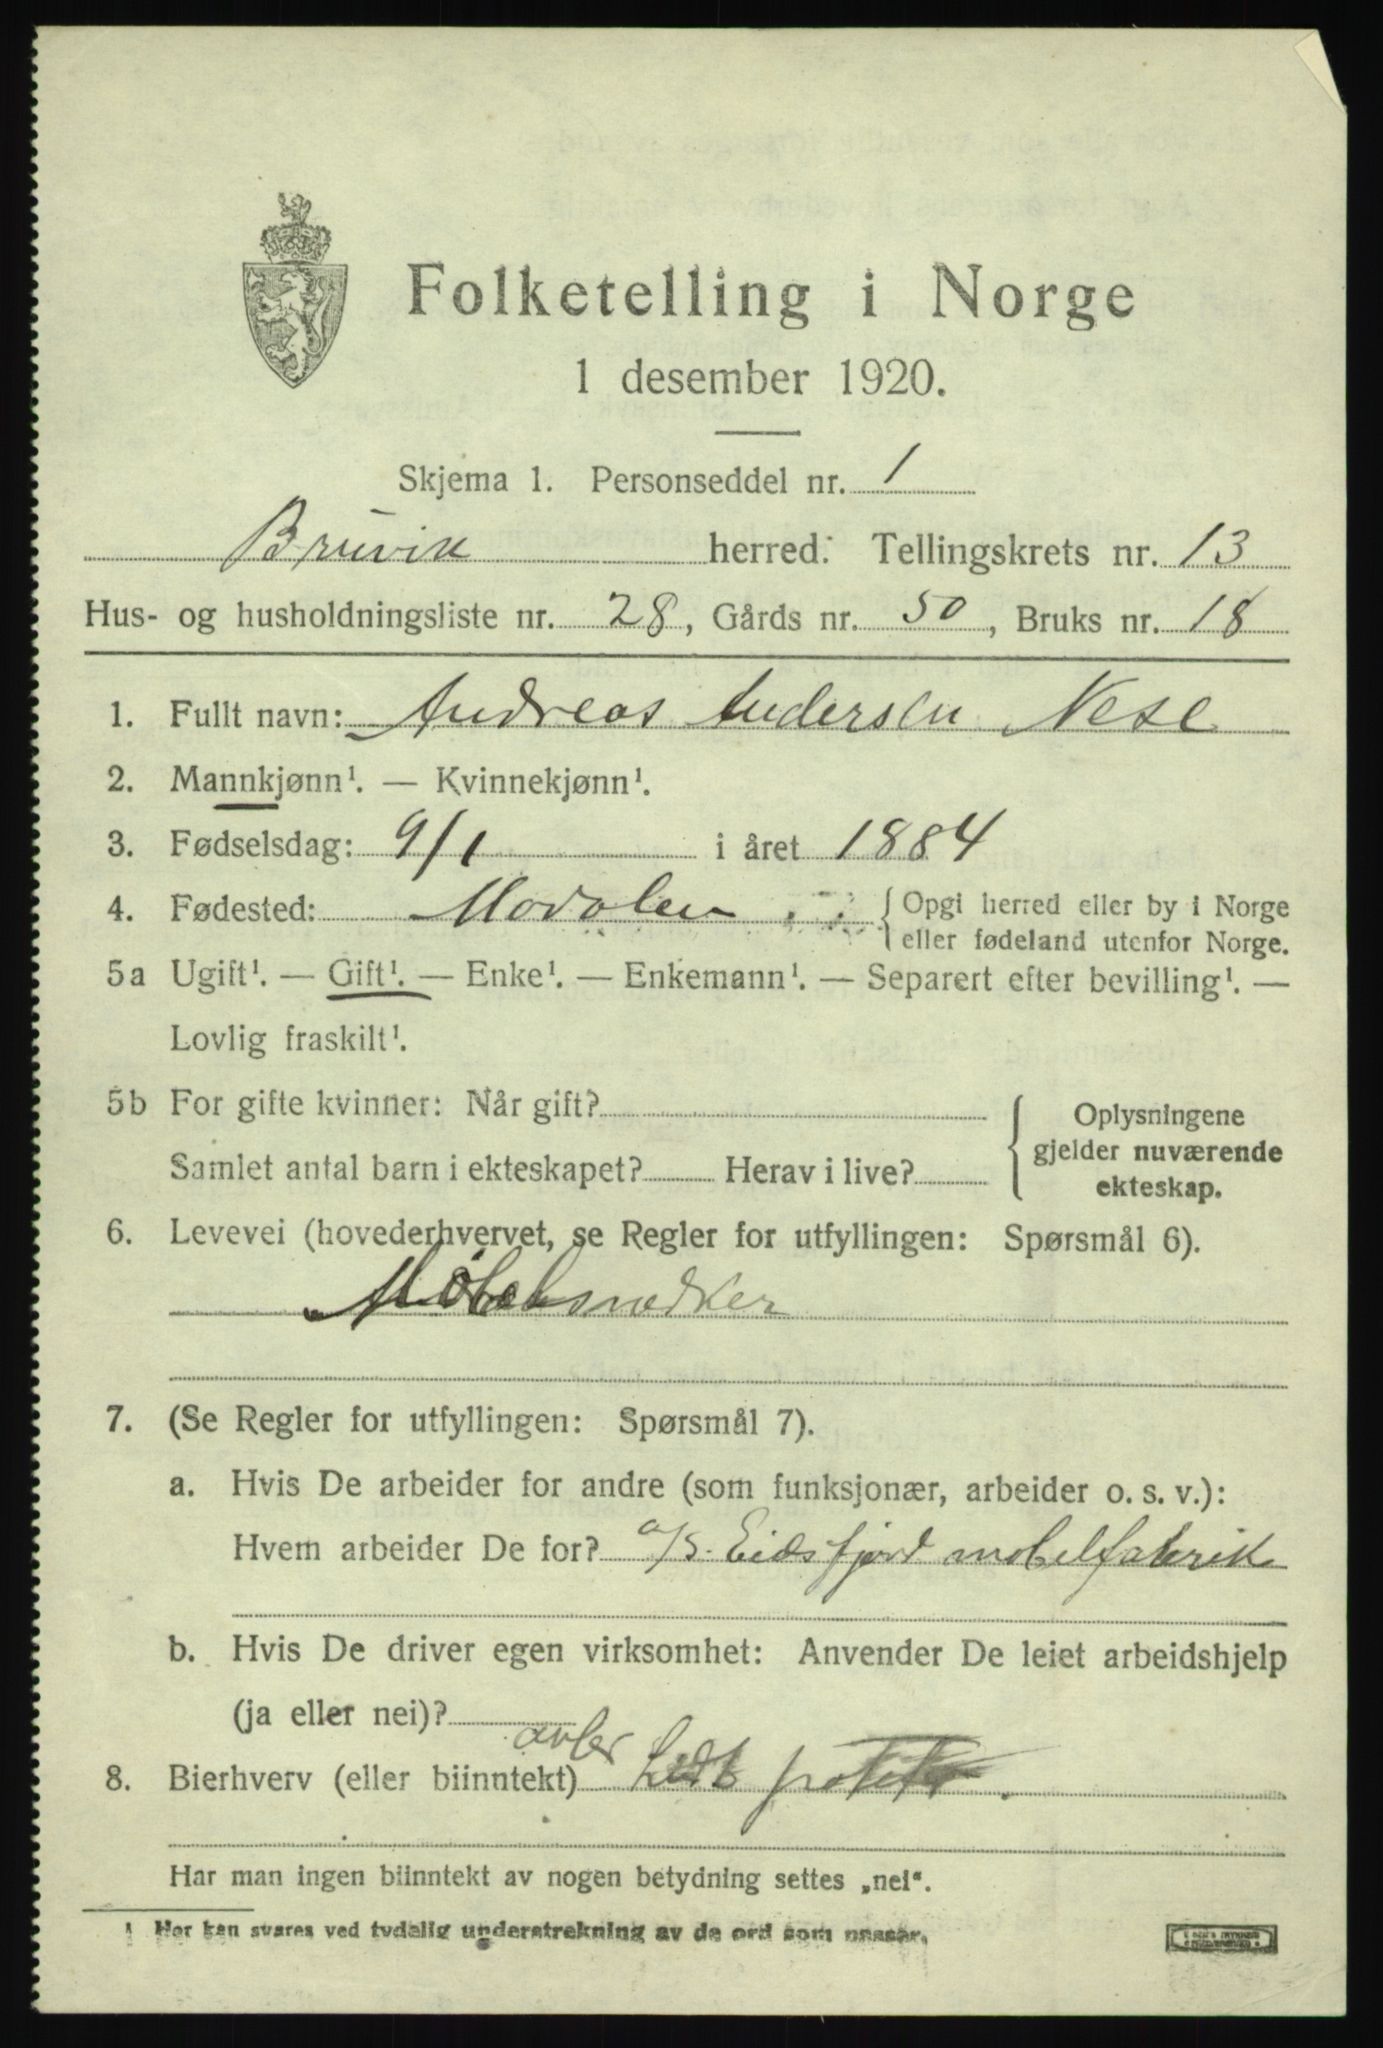 Folketelling i Norge
1 desember 1920.
Skjema 1. Personseddel nr. 1
Bruvik herred. Tellingskrets nr. 13
Hus- og husholdningsliste nr. 28, Gårds nr. 50, Bruks nr. 18
1. Fullt navn: Andreas Andersen Nese
2. Mannkjønn¹. — Kvinnekjønn¹.
3. Fødselsdag: 9/1 i året 1884
4. Fødested: Modalen { Opgi herred eller by i Norge
eller fødeland utenfor Norge.
5a Ugift¹. — Gift¹. — Enke¹. — Enkemann¹. — Separert efter bevilling¹. —
Lovlig fraskilt¹.
5b For gifte kvinner: Når gift?
Samlet antal barn i ekteskapet? Herav i live?
{ Oplysningene
gjelder nuværende
ekteskap.
6. Levevei (hovederhvervet, se Regler for utfyllingen: Spørsmål 6).
Møbelsnedker
7. (Se Regler for utfyllingen: Spørsmål 7).
a. Hvis De arbeider for andre (som funksjonær, arbeider o. s. v.):
Hvem arbeider De for? a/s. Eidsfjord mobelfabrik
b. Hvis De driver egen virksomhet: Anvender De leiet arbeidshjelp
(ja eller nei)?
avler
8. Bierhverv (eller biinntekt) Lidt
Har man ingen biinntekt av nogen betydning settes „nei“.
¹ Her kan svares ved tydelig understrekning av de ord som passer.